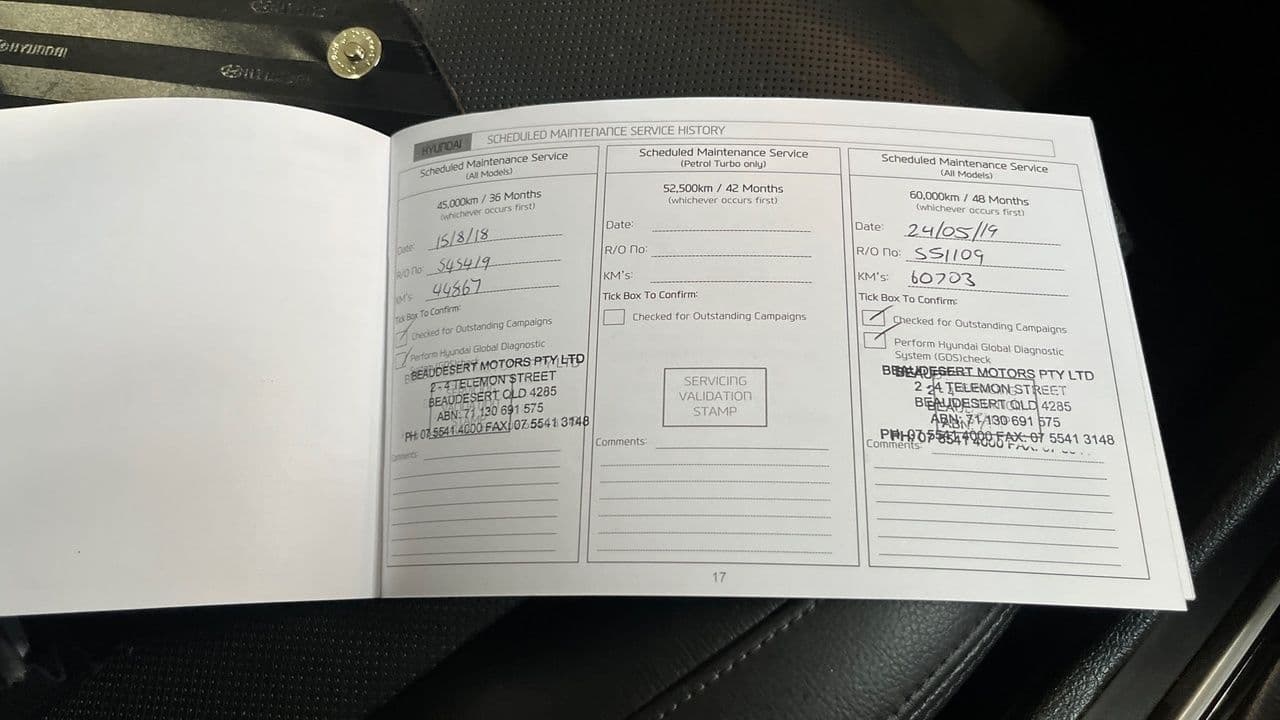 HYUNDAI
HYUNDAI
HYUNDAI SCHEDULED MAINTENANCE SERVICE HISTORY
Scheduled Maintenance Service
(All Models)
45,000km / 36 Months
(whichever occurs first)
Date: 15/8/18
R/O No: S45419
KM's: 44867
Tick Box To Confirm:
Checked for Outstanding Campaigns
Perform Hyundai Global Diagnostic
BEAUDESERT MOTORS PTY LTD
2 - 4 TELEMON STREET
BEAUDESERT QLD 4285
ABN: 71 130 691 575
PH: 07 5541 4000 FAX: 07 5541 3148
Comments:
Scheduled Maintenance Service
(Petrol Turbo only)
52,500km / 42 Months
(whichever occurs first)
Date:
R/O No:
KM's:
Tick Box To Confirm:
Checked for Outstanding Campaigns
SERVICING
VALIDATION
STAMP
Comments:
Scheduled Maintenance Service
(All Models)
60,000km / 48 Months
(whichever occurs first)
Date: 24/05/19
R/O No: SS1109
KM's: 60703
Tick Box To Confirm:
Checked for Outstanding Campaigns
Perform Hyundai Global Diagnostic
System (GDS)check
BEAUDESERT MOTORS PTY LTD
2 - 4 TELEMON STREET
BEAUDESERT QLD 4285
ABN: 71 130 691 575
PH: 07 5541 4000 FAX: 07 5541 3148
Comments:
17